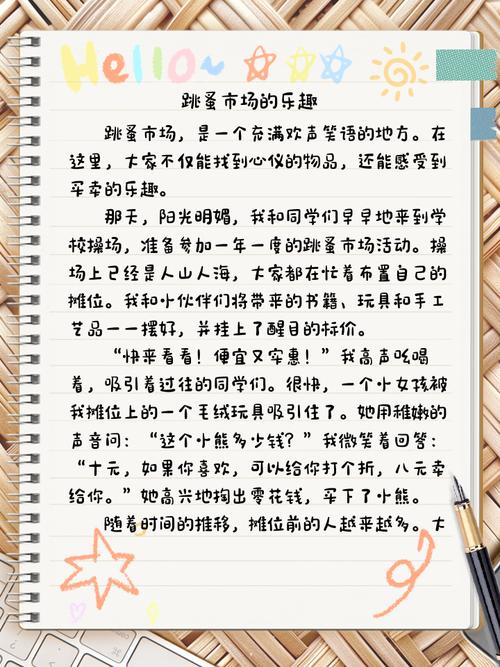 Hello~
跳蚤市场的乐趣
跳蚤市场，是一个充满欢声笑语的地方。在
这里，大家不仅能找到心仪的物品，还能感受到
买卖的乐趣。
那天，阳光明媚，我和同学们早早地来到学
校操场，准备参加一年一度的跳蚤市场活动。操
场上已经是人山人海，大家都在忙着布置自己的
摊位。我和小伙伴们将带来的书籍、玩具和手工
艺品一一摆好，并挂上了醒目的标价。
“快来看看！便宜又实惠！”我高声吆喝
着，吸引着过往的同学们。很快，一个小女孩被
我摊位上的一个毛绒玩具吸引住了。她用稚嫩的
声音问：“这个小熊多少钱？”我微笑着回答：
“十元，如果你喜欢，可以给你打个折，八元卖
给你。”她高兴地掏出零花钱，买下了小熊。
随着时间的推移，摊位前的人越来越多。大